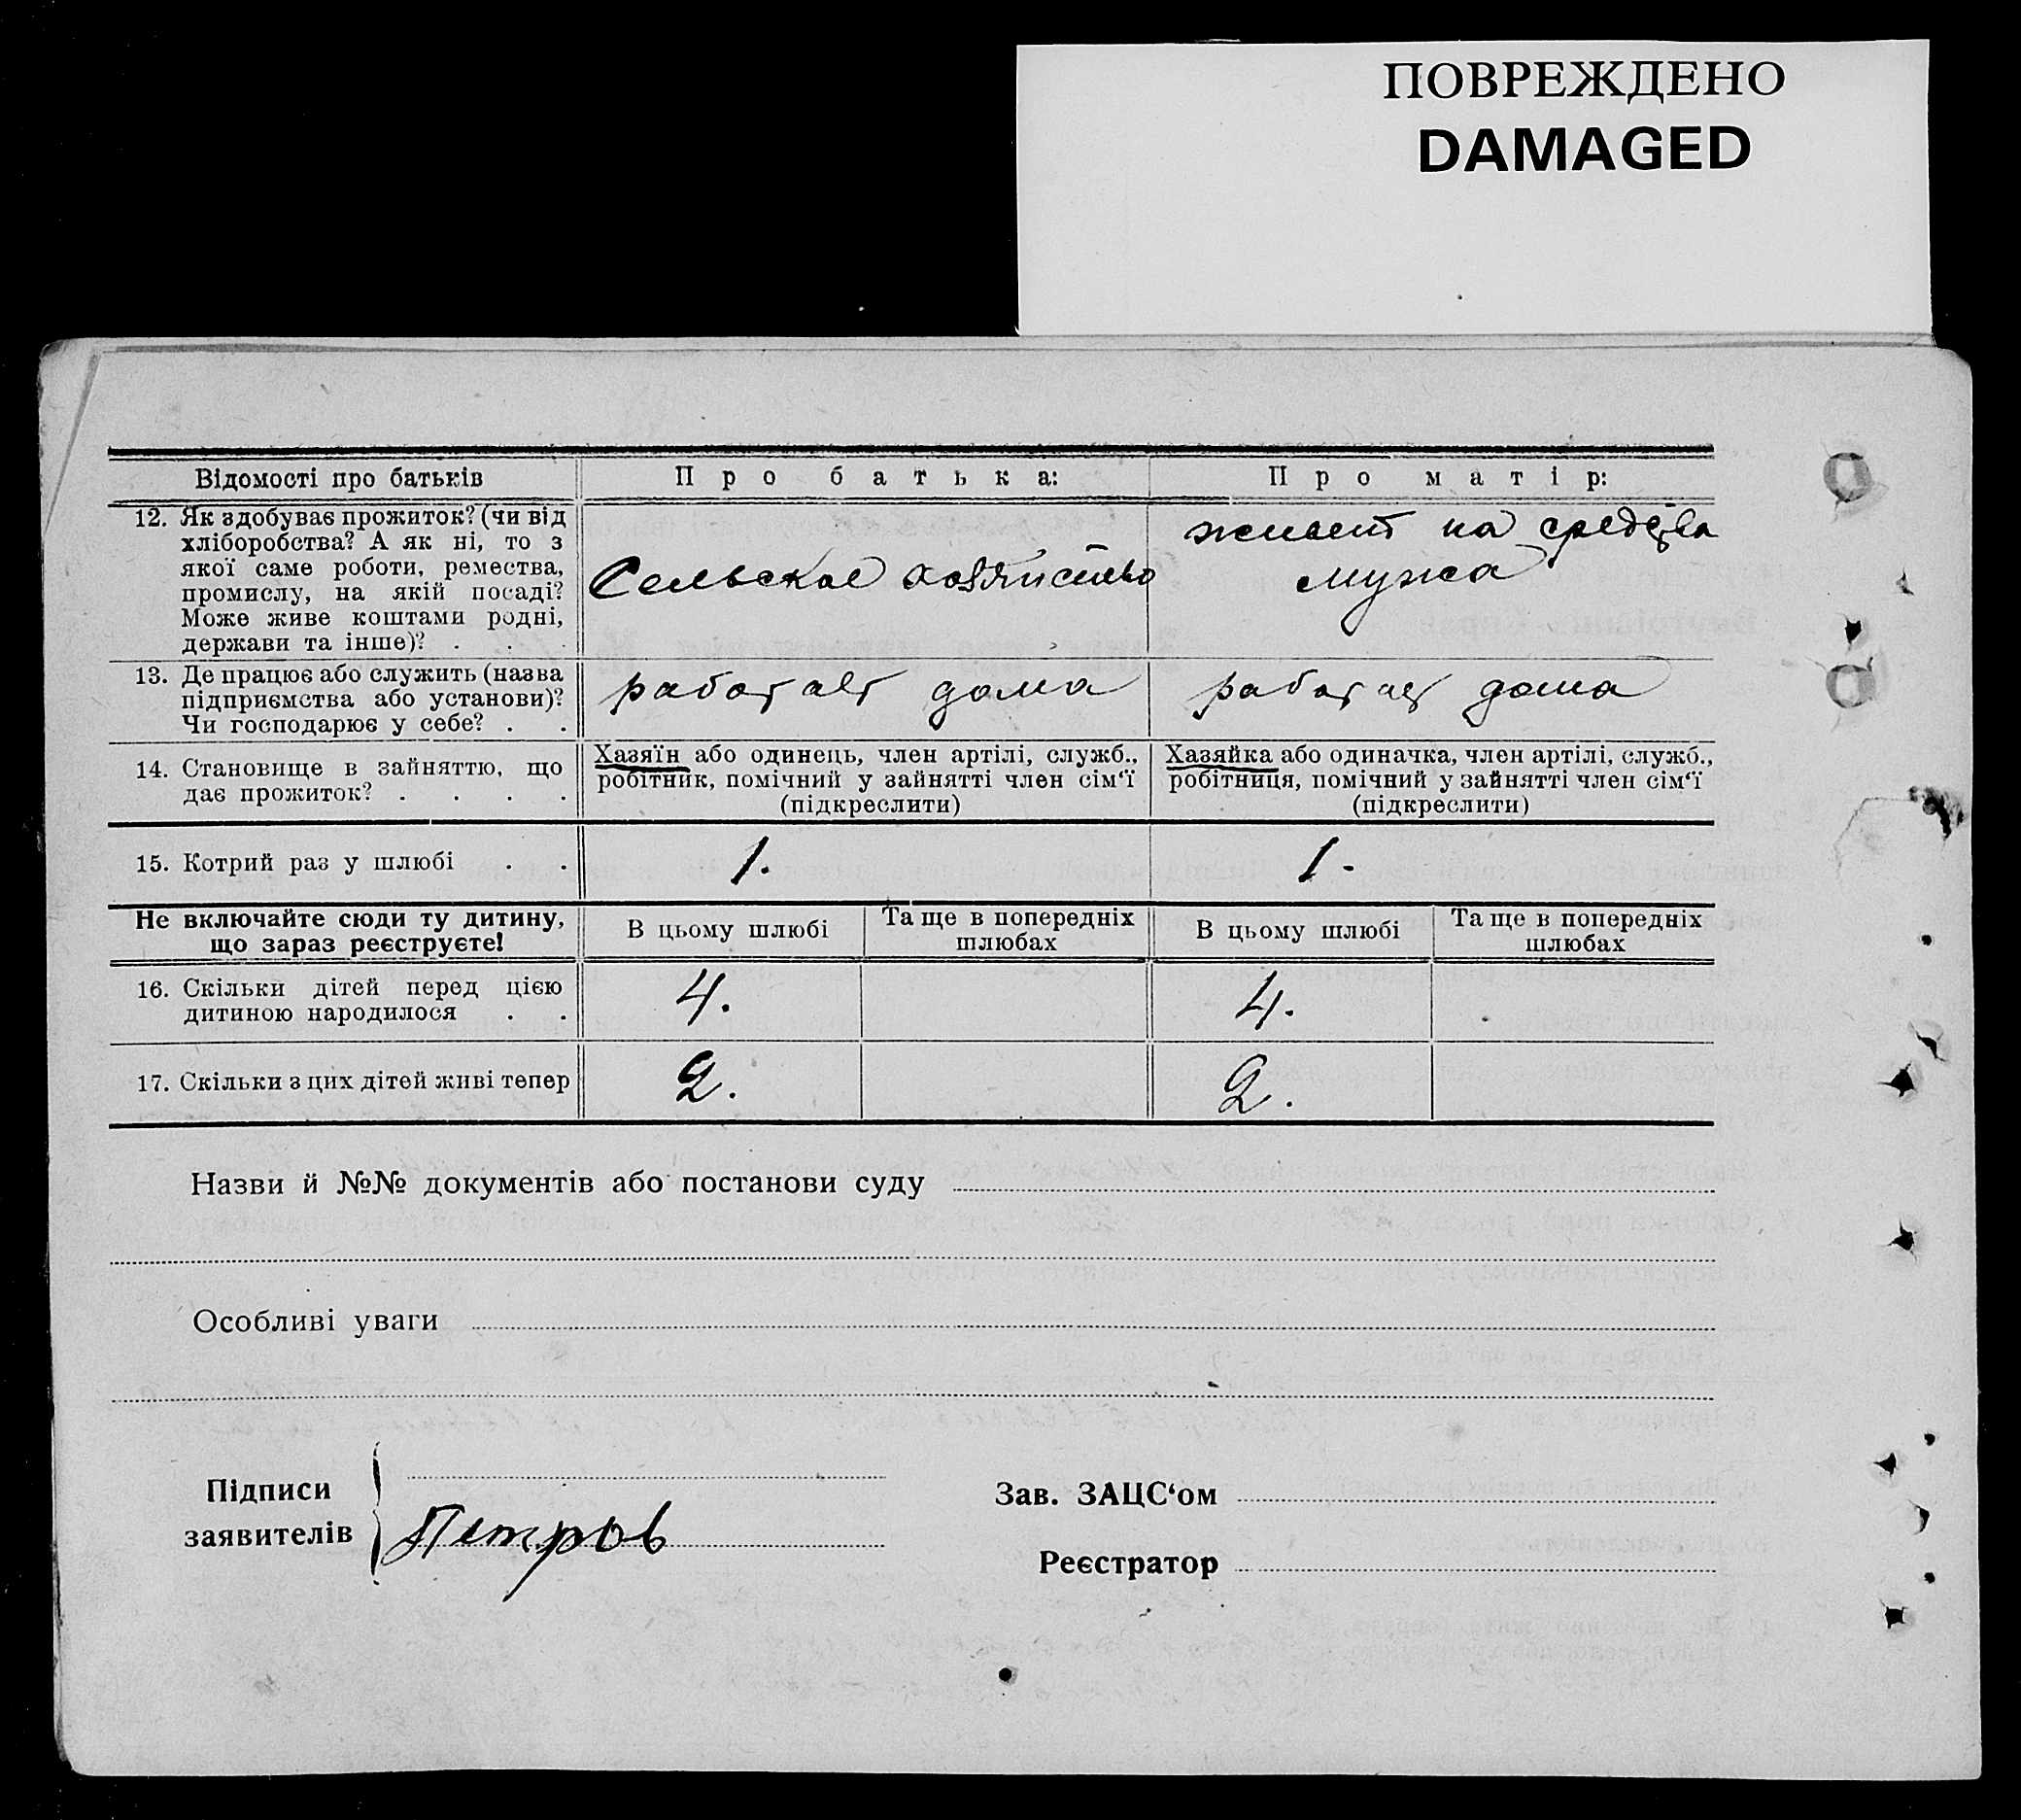 ПОВРЕЖДЕНО
DAMAGED
Відомості про батьків
Про батька:
Про матір:
12. Як здобуває прожиток? (чи від
хліборобства? А як ні, то з
якої саме роботи, ремества,
промислу, на якій посаді?
Може живе коштами родні,
держави та інше)? . . .
Сельское хозяйство
живет на средства
мужа
13. Де працює або служить (назва
підприємства або установи)?
Чи господарює у себе? . .
работает дома
работает дома
14. Становище в зайняттю, що
дає прожиток? . . . .
Хазяїн або одинець, член артілі, служб.,
робітник, помічний у зайнятті член сім‘ї
(підкреслити)
Хазяйка або одиначка, член артілі, служб.,
робітниця, помічний у зайнятті член сім‘ї
(підкреслити)
15. Котрий раз у шлюбі . .
1.
1.
Не включайте сюди ту дитину,
що зараз реєструєте!
В цьому шлюбі
Та ще в попередніх
шлюбах
В цьому шлюбі
Та ще в попередніх
шлюбах
16. Скільки дітей перед цією
дитиною народилося . .
4.
4.
17. Скільки з цих дітей живі тепер
2.
2.
Назви й №№ документів або постанови суду
Особливі уваги
Підписи
заявителів
Петров
Зав. ЗАЦС‘ом
Реєстратор